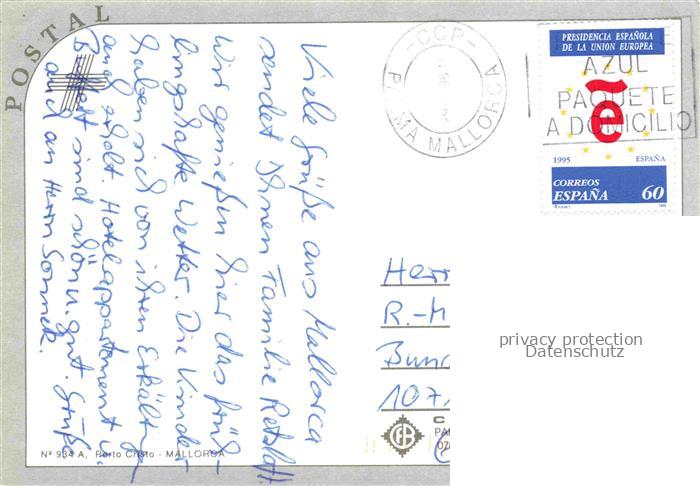 POSTAL
Viele Grüße aus Mallorca
sendet Ihnen Familie Retzlaff.
Wir genießen hier das früh-
lingshafte Wetter. Die Kinder
haben sich von ihren Erkältg.
auch erholt. Hotelappartement u.
Buffet sind schön u. gut. Grüße
auch an Herrn
CCP
PALMA MALLORCA
AZUL
PAQUETE
A DOMICILIO
PRESIDENCIA ESPAÑOLA
DE LA UNION EUROPEA
ẽ
1995 ESPAÑA
CORREOS
ESPAÑA 60
Herr
R.-M
Bun
107
privacy protection
Datenschutz
Nº 934 A, Porto Cristo - MALLORCA